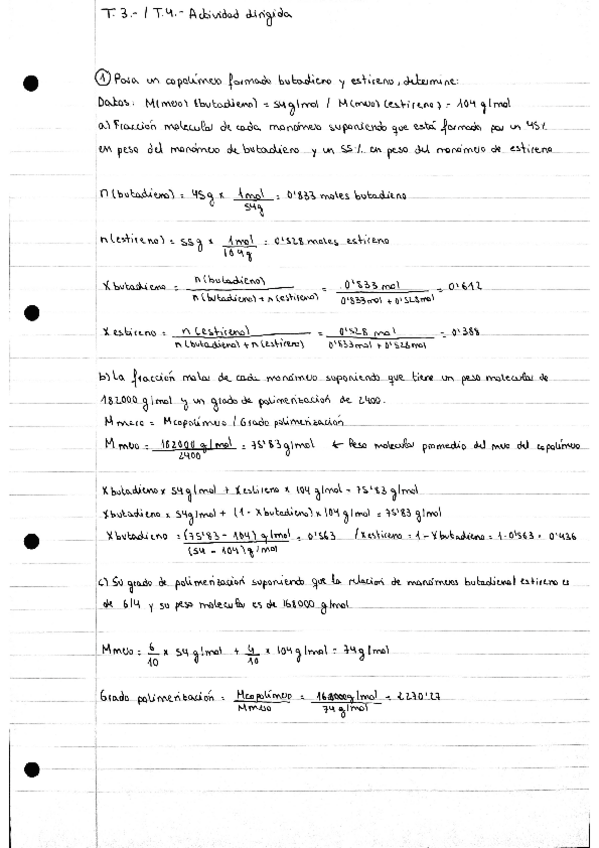 T.3.- / T.4.- Actividad dirigida
① Para un copolímero formado butadieno y estireno, determine:
Datos: M(mero)(butadieno) = 54 g/mol / M(mero)(estireno) = 104 g/mol
a) Fracción molecular de cada monómero suponiendo que está formado por un 45%
en peso del monómero de butadieno y un 55% en peso del monómero de estireno
n(butadieno) = 45g × 1mol / 54g = 0'833 moles butadieno
n(estireno) = 55g × 1mol / 104g = 0'528 moles estireno
X butadieno = n(butadieno) / n(butadieno) + n(estireno) = 0'833 mol / 0'833mol + 0'528mol = 0'612
X estireno = n(estireno) / n(butadieno) + n(estireno) = 0'528 mol / 0'833mol + 0'528mol = 0'388
b) La fracción molar de cada monómero suponiendo que tiene un peso molecular de
182000 g/mol y un grado de polimerización de 2400.
M mero = Mcopolímero / Grado polimerización
M mero = 182000 g/mol / 2400 = 75'83 g/mol ← Peso molecular promedio del mero del copolímero
X butadieno × 54 g/mol + X estireno × 104 g/mol = 75'83 g/mol
X butadieno × 54g/mol + (1 - X butadieno) × 104 g/mol = 75'83 g/mol
X butadieno = (75'83 - 104) g/mol / (54 - 104) g/mol = 0'563 / X estireno = 1 - X butadieno = 1 - 0'563 = 0'436
c) Su grado de polimerización suponiendo que la relación de monómeros butadieno/estireno es
de 6/4 y su peso molecular es de 168000 g/mol
M mero = 6/10 × 54 g/mol + 4/10 × 104 g/mol = 74 g/mol
Grado polimerización = Mcopolímero / Mmero = 168000g/mol / 74 g/mol = 2270'27